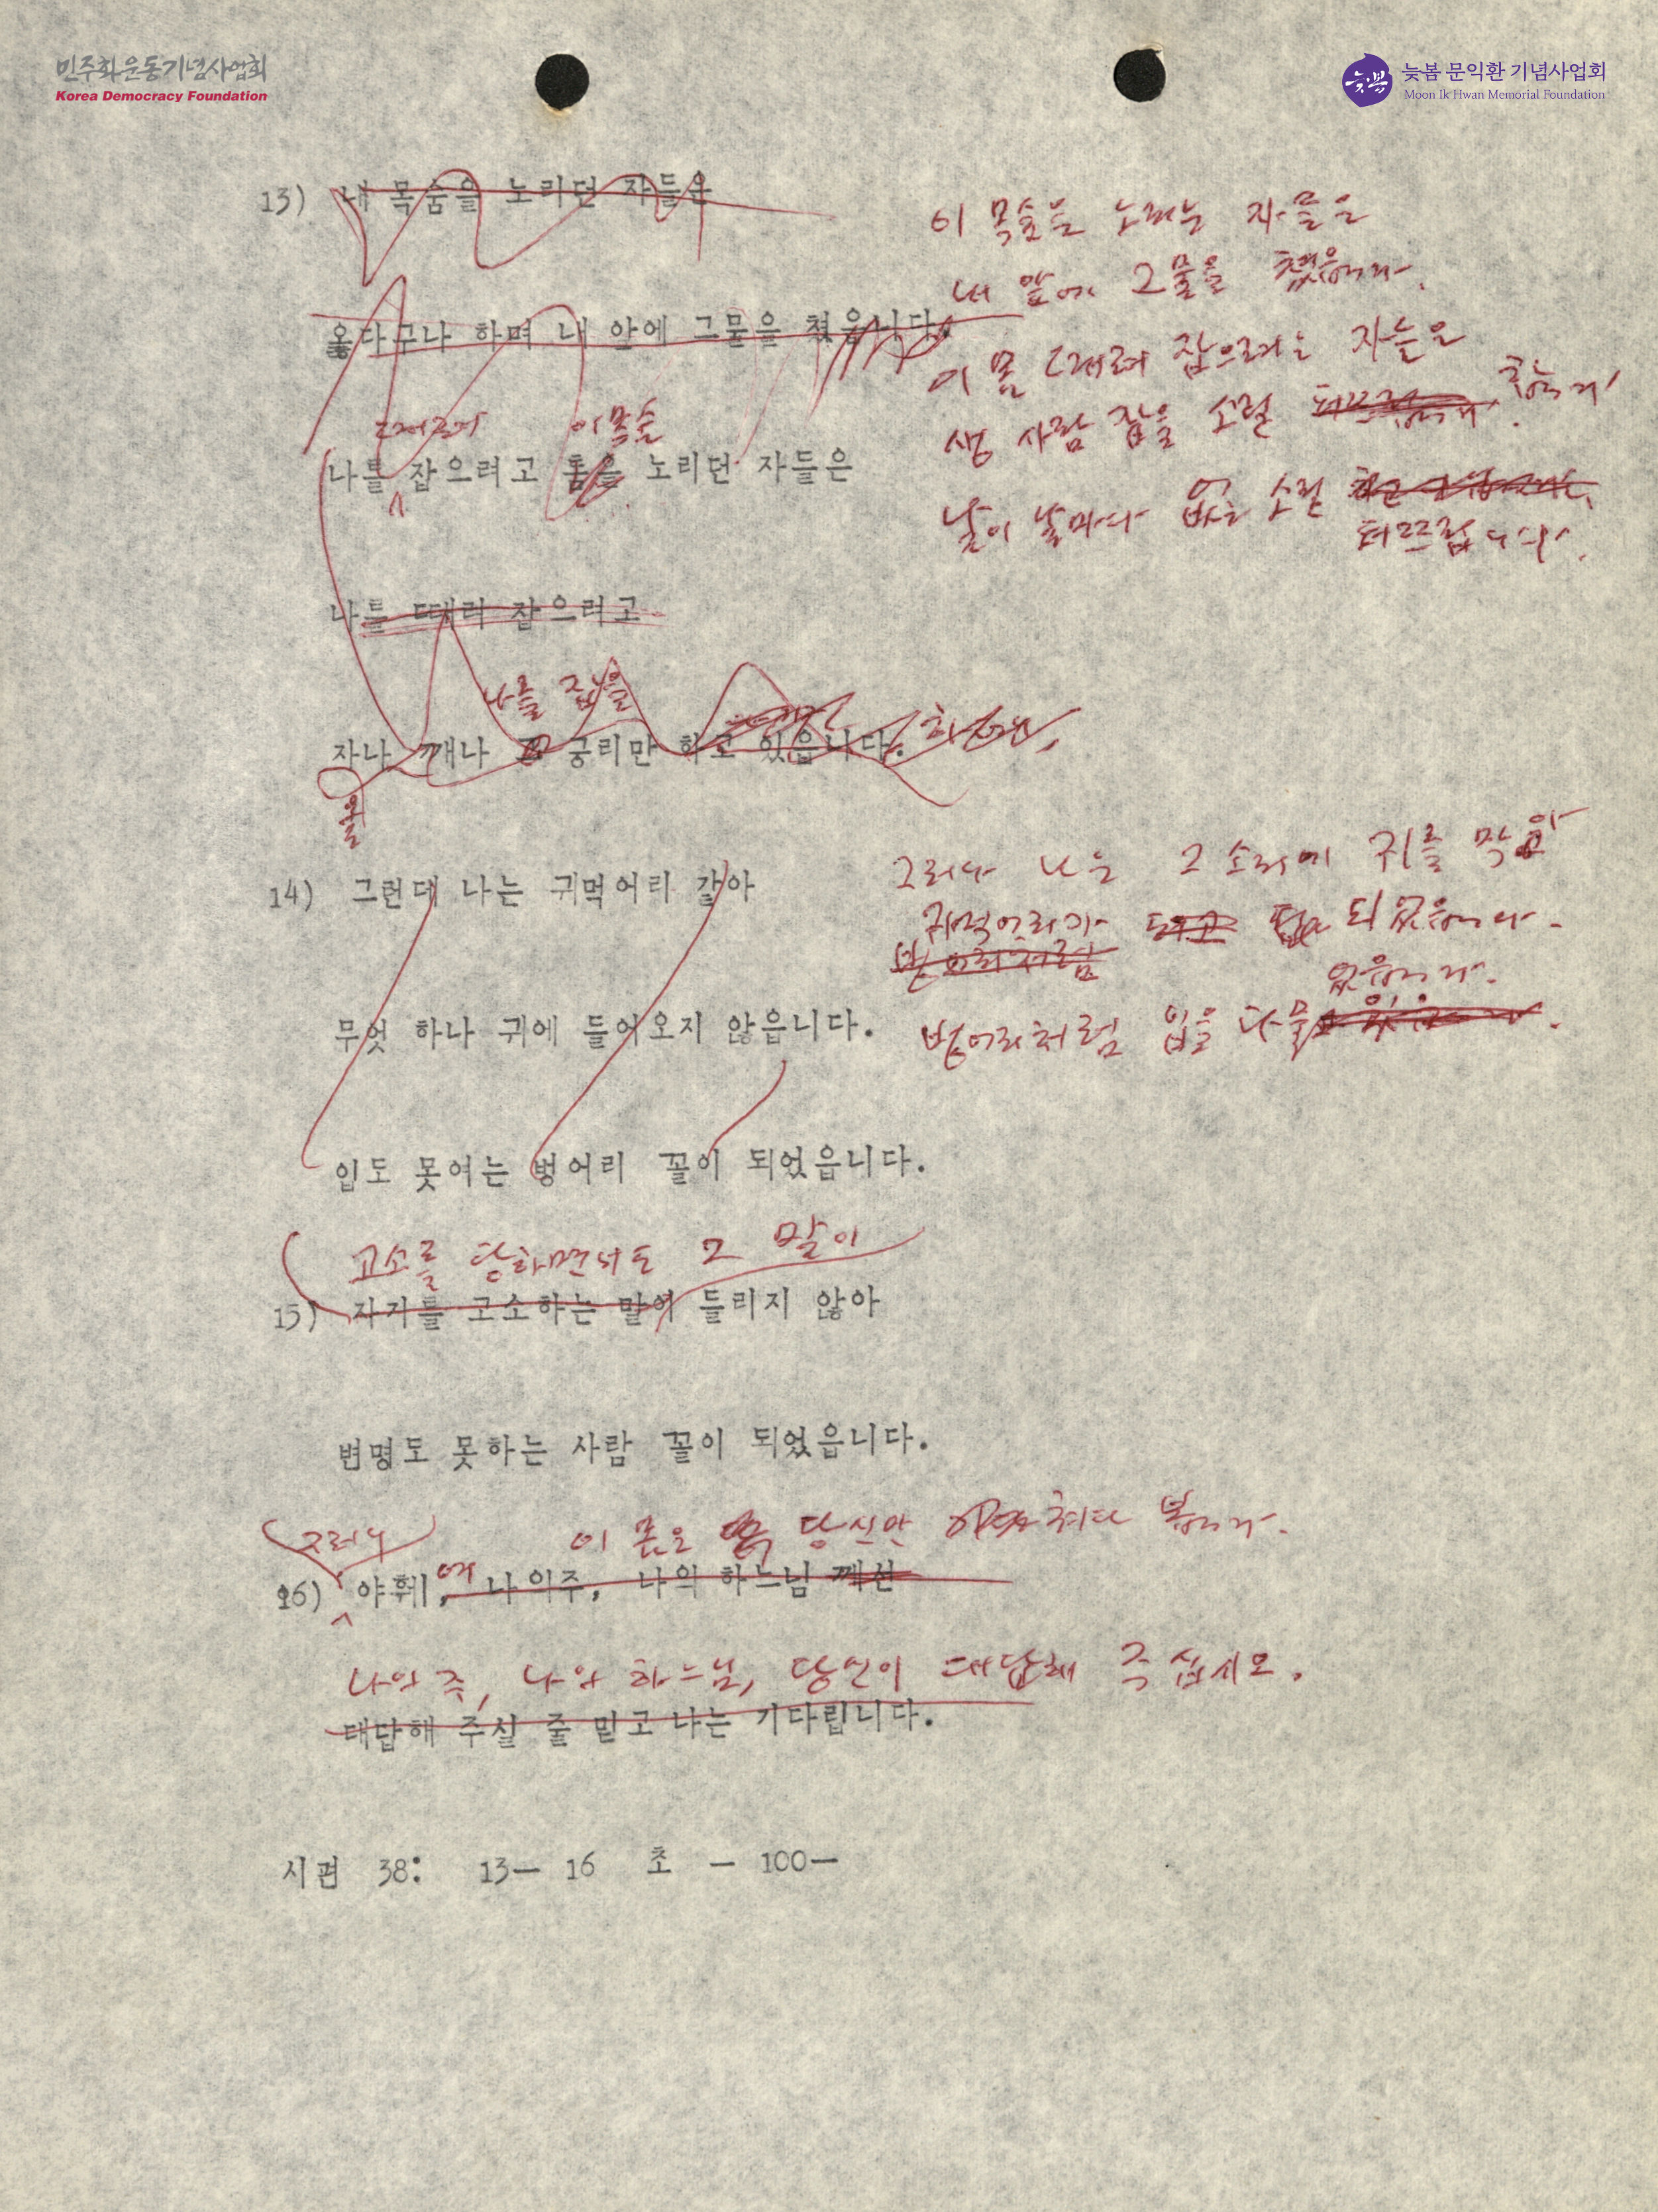 민주화운동기념사업회
Korea Democracy Foundation
늦봄
늦봄 문익환 기념사업회
Moon Ik Hwan Memorial Foundation
13) 내 목숨을 노리던 자들은
이 목숨을 노리는 자들은
내 앞에 그물을 쳤읍니다.
옳다구나 하며 내 안에 그물을 쳤읍니다.
이 몸 때려 잡으려는 자들은
생 사람 잡을 소릴 합니다
때려 이 목숨
나를 잡으려고 몸을 노리던 자들은
날이 날마다 없는 소릴
퍼뜨립니다.
나를 때려 잡으려고
나를 잡을
자나 깨나 그 궁리만 하고 있읍니다.
올
14) 그런데 나는 귀먹어리 같아
그러나 나는 그 소리에 귀를 막아
귀먹어리가 되고 되었읍니다.
벙어리처럼
무엇 하나 귀에 들어오지 않읍니다.
었읍니다.
벙어리처럼 입을 다물고
입도 못여는 벙어리 꼴이 되었읍니다.
고소를 당하면서도 그 말이
15) 자기를 고소하는 말이 들리지 않아
변명도 못하는 사람 꼴이 되었읍니다.
그러나 이 몸은 당신만 쳐다 봅니다.
16) 야훼여, 나의주, 나의 하느님 께선
나의 주, 나의 하느님, 당신이 대답해 주십시오.
대답해 주실 줄 믿고 나는 기다립니다.
시편 38: 13- 16 초 - 100-